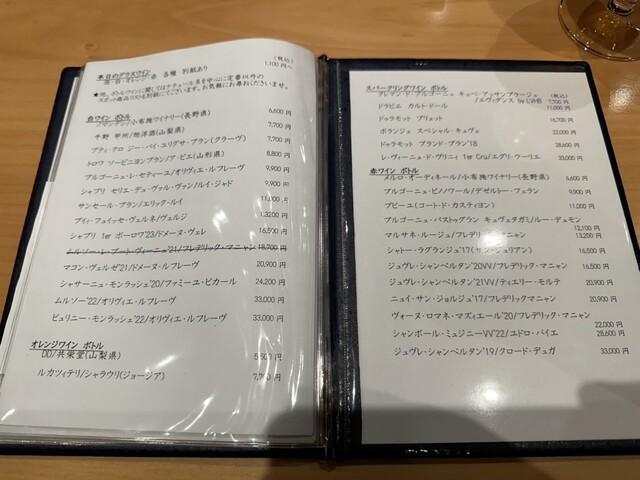 本日のグラスワイン (税込)
泡・白・オレンジ・赤 各種 別紙あり 1,100円～
★他、ボトルワインに関してはナチュール系を中心に定番以外の
スポット商品リストも別紙にてございます。お気軽にお尋ねくださいませ。
白ワイン ボトル
シャルドネ/小布施ワイナリー(長野県) 6,600 円
千野 甲州/旭洋酒(山梨県) 7,700 円
プティ・クロ ジー・バイ・ユリグサ・ブラン(グラーヴ) 7,700 円
トロワ ソービニヨンブラン/ラ・ピエ(山形県) 8,800 円
ブルゴーニュ・レ・セティーユ/オリヴィエ・ルフレーヴ 9,900 円
シャブリ セリエ・デュ・ヴァル・ヴァン/ルイ・ジャド 9,900 円
サンセール・ブラン/エリック・ルイ 11,000 円
プイィ・フュイッセ・ヴェルネ/ヴェルジ 1,3200 円
シャブリ 1er ボーロワ'23/ドメーヌ・ヴェレ 16,500 円
ムルソー・レ・プート・ヴィーニュ'21/フレデリック・マニャン 18,700 円
マコン・ヴェルゼ'21/ドメーヌ・ルフレーヴ 20,900 円
シャサーニュ・モンラッシェ'20/ファミーユ・ピカール 24,200 円
ムルソー'22/オリヴィエ・ルフレーヴ 33,000 円
ピュリニー・モンラッシェ'22/オリヴィエ・ルフレーヴ 33,000 円
オレンジワイン ボトル
DD/共栄堂(山梨県) 5,500 円
ルカツィテリ/シャラウリ(ジョージア) 7,700 円
スパークリングワイン ボトル (税込)
クレマン・ド・ブルゴーニュ キュベ・アッサンブラージュ 7,700 円
/ルヴィダンス by 11,000 円
ドラピエ カルト・ドール
ドゥラモット ブリュット 16,700 円
ボランジェ スペシャル・キュヴェ 22,000 円
ドゥラモット ブラン・ド・ブラン'18 28,600 円
レ・ヴィーニュ・ド・ヴリニィ 1er Cru/エグリ・ウーリエ 33,000 円
赤ワイン ボトル
メルロ・オーディネール/小布施ワイナリー(長野県) 6,600 円
ブルゴーニュ・ピノノワール/デゼルトー・フェラン 9,900 円
ブピーユ(コート・ド・カスティヨン) 11,000 円
ブルゴーニュ・パストゥグラン キュヴェタガミ/ルー・デュモン 12,100 円
マルサネ・ルージュ/フレデリック・マニャン 13,200 円
シャトー・ラグランジュ'17(サン・ジュリアン) 16,500 円
ジュヴレ・シャンベルタン'20VV/フレデリック・マニャン 16,500 円
ジュヴレ・シャンベルタン'21VV/ティエリー・モルテ 20,900 円
ニュイ・サン・ジョルジュ'17/フレデリックマニャン 20,900 円
ヴォーヌ・ロマネ・マズィエール'20/フレデリック・マニャン 22,000 円
シャンボール・ミュジニーVV'22/ユドロ・バイエ 28,600 円
ジュヴレ・シャンベルタン'19/クロード・デュガ 33,000 円